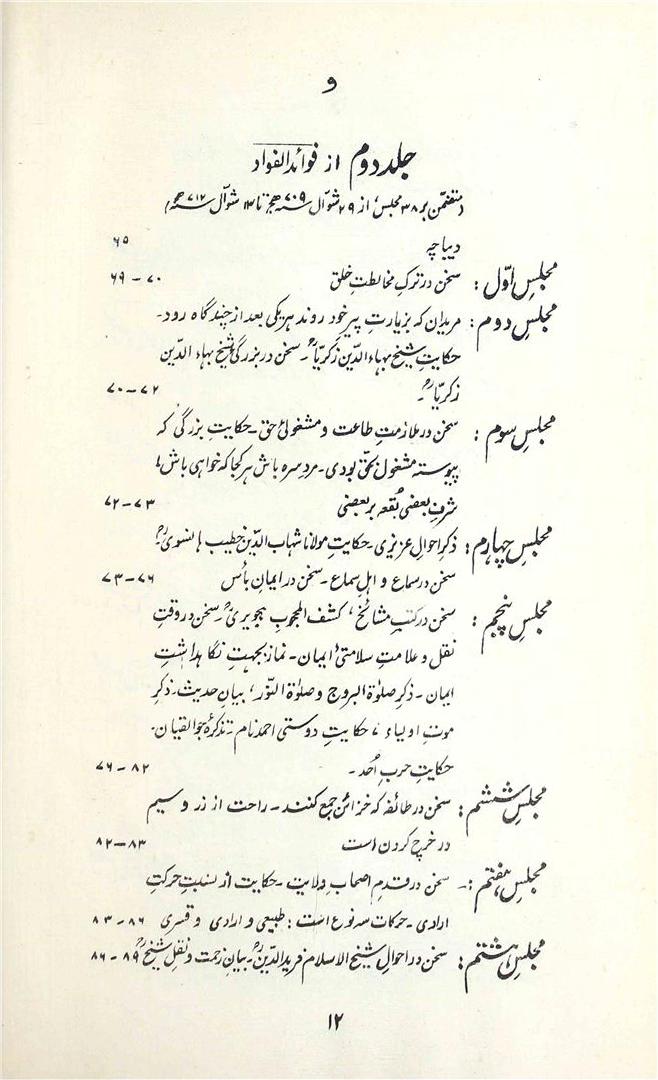 و
جلد دوم از فوائد الفواد
(متضمّن بر ۳۸ مجلس؛ از ۲۹ شوّال سنه ۷۰۹ هج تا ۱۳ شوّال سنه ۷۱۲ هج)
دیباچه ۶۵
مجلسِ اوّل: سخن در ترکِ مخالطتِ خلق ۷۰-۶۹
مجلسِ دوم: مریدان که بزیارتِ پیرِ خود روند هر یکی بعد از چند گاه رود۔
حکایتِ شیخ بهاء الدّین زکریّاؒ۔ سخن در بزرگیِ شیخ بهاء الدّین
زکریّاؒ۔ ۷۲-۷۰
مجلسِ سوم: سخن در ملازمتِ طاعت و مشغولیٔ حق۔ حکایتِ بزرگی که
پیوسته مشغول بحق بودی۔ مردِ سره باش هر کجا که خواهی باش؛
شرفِ بعضی بُقعه بر بعضی ۷۳-۷۲
مجلسِ چهارم: ذکرِ احوالِ عزیزی۔ حکایتِ مولانا شهاب الدّین خطیب هانسویؒ۔
سخن در سماع و اهلِ سماع۔ سخن در ایمانِ بأس ۷۶-۷۳
مجلسِ پنجم: سخن در کتبِ مشائخ، کشف المحجوبِ هجویریؒ۔ سخن در وقتِ
نقل و علامتِ سلامتیٔ ایمان۔ نماز بجهتِ نگاهداشتِ
ایمان۔ ذکرِ صلوٰة البروج و صلوٰة النّور، بیانِ حدیث۔ ذکرِ
موتِ اولیاء، حکایتِ دوستی احمد نام۔ تذکرهٔ جوالقیان۔
حکایتِ حربِ اُحد۔ ۸۲-۷۶
مجلسِ ششم: سخن در طائفه که خزائن جمع کنند۔ راحت از زر و سیم
در خرج کردن است ۸۳-۸۲
مجلسِ هفتم:۔ سخن در قدمِ اصحابِ ولایت۔ حکایت از نسبتِ حرکتِ
ارادی۔ حرکات سه نوع است: طبیعی و ارادی و قسری ۸۶-۸۳
مجلسِ هشتم: سخن در احوالِ شیخ الاسلام فرید الدّینؒ۔ بیانِ زحمت و نقلِ شیخؒ ۸۹-۸۶
۱۲